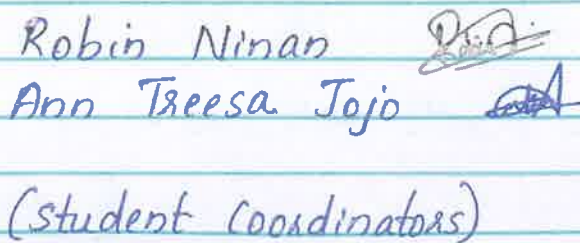 Robin Ninan
Ann Treesa Jojo
(student coordinators)